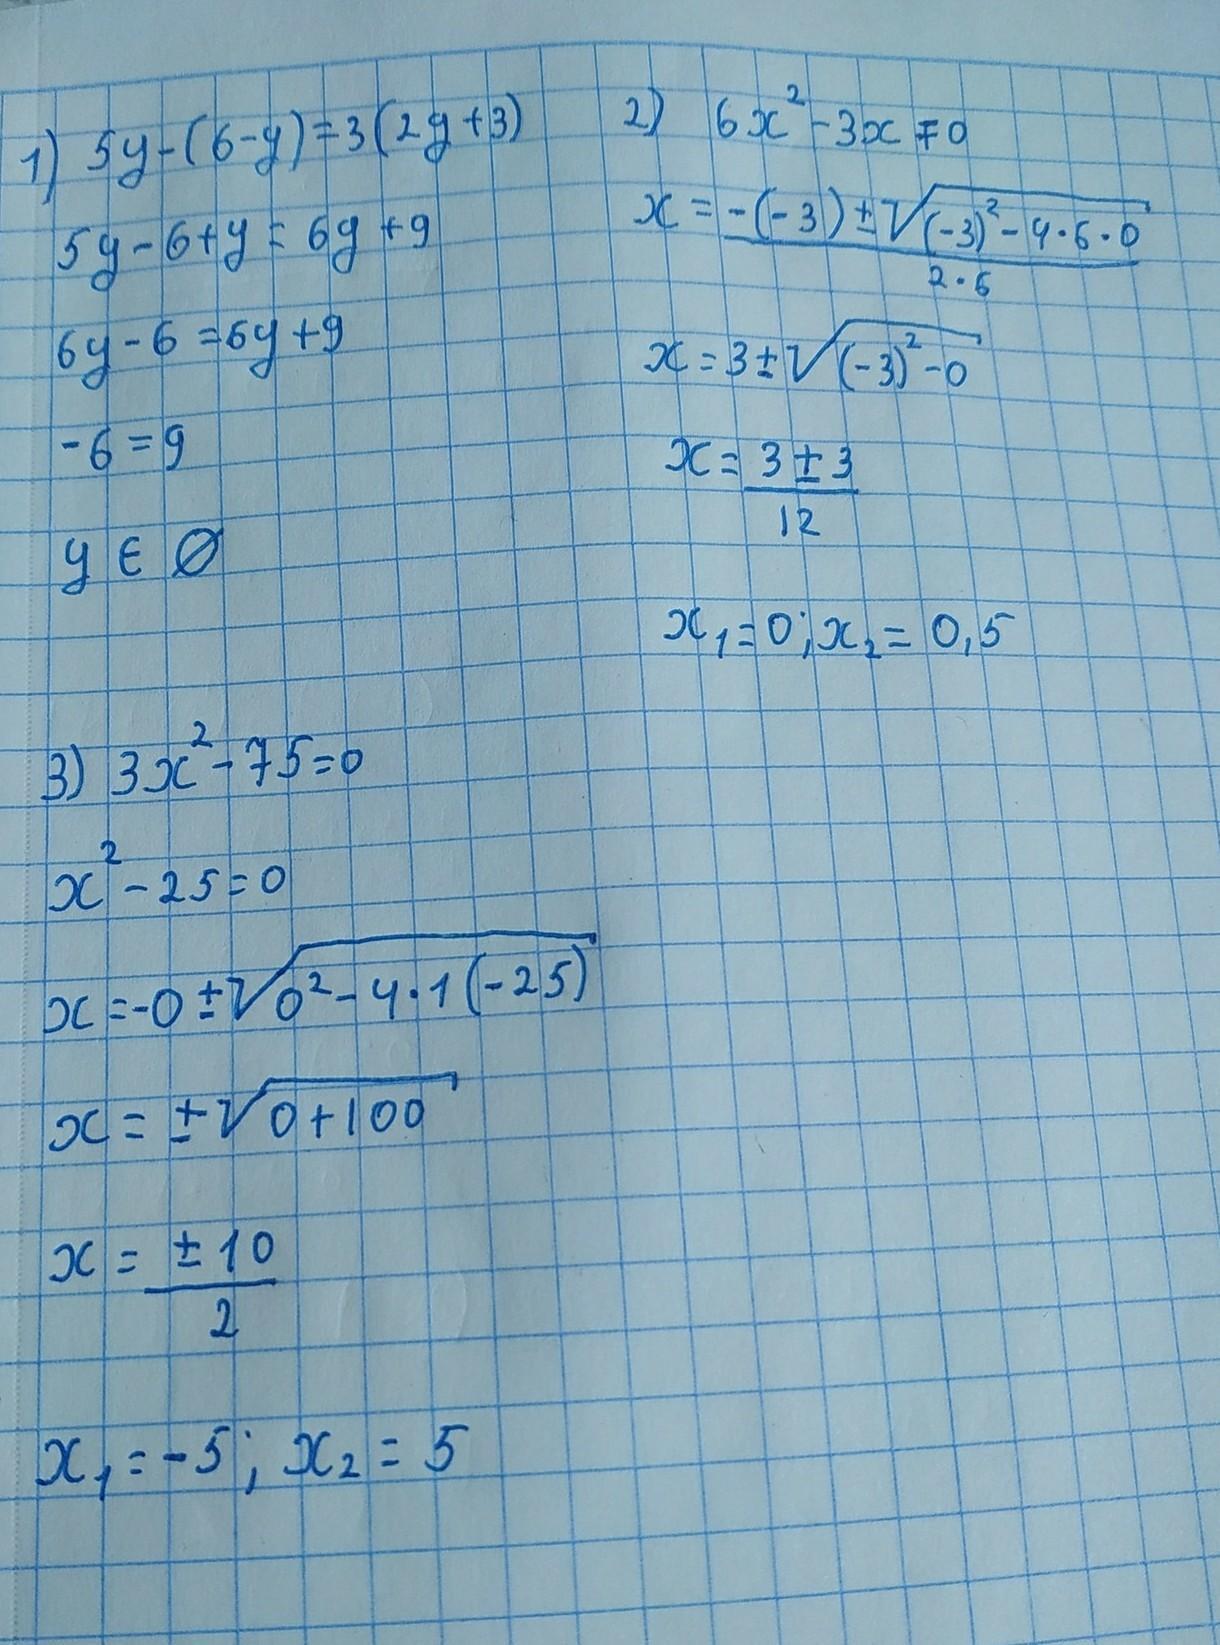 1) 5y-(6-y)=3(2y+3)
5y-6+y=6y+9
6y-6=6y+9
-6=9
y ∈ ∅
2) 6x²-3x=0
x = -(-3)±√(-3)²-4·6·0
2·6
x=3±√(-3)²-0
x= 3±3
12
x₁=0; x₂=0,5
3) 3x²-75=0
x²-25=0
x=-0±√0²-4·1(-25)
x=±√0+100
x= ±10
2
x₁=-5; x₂=5